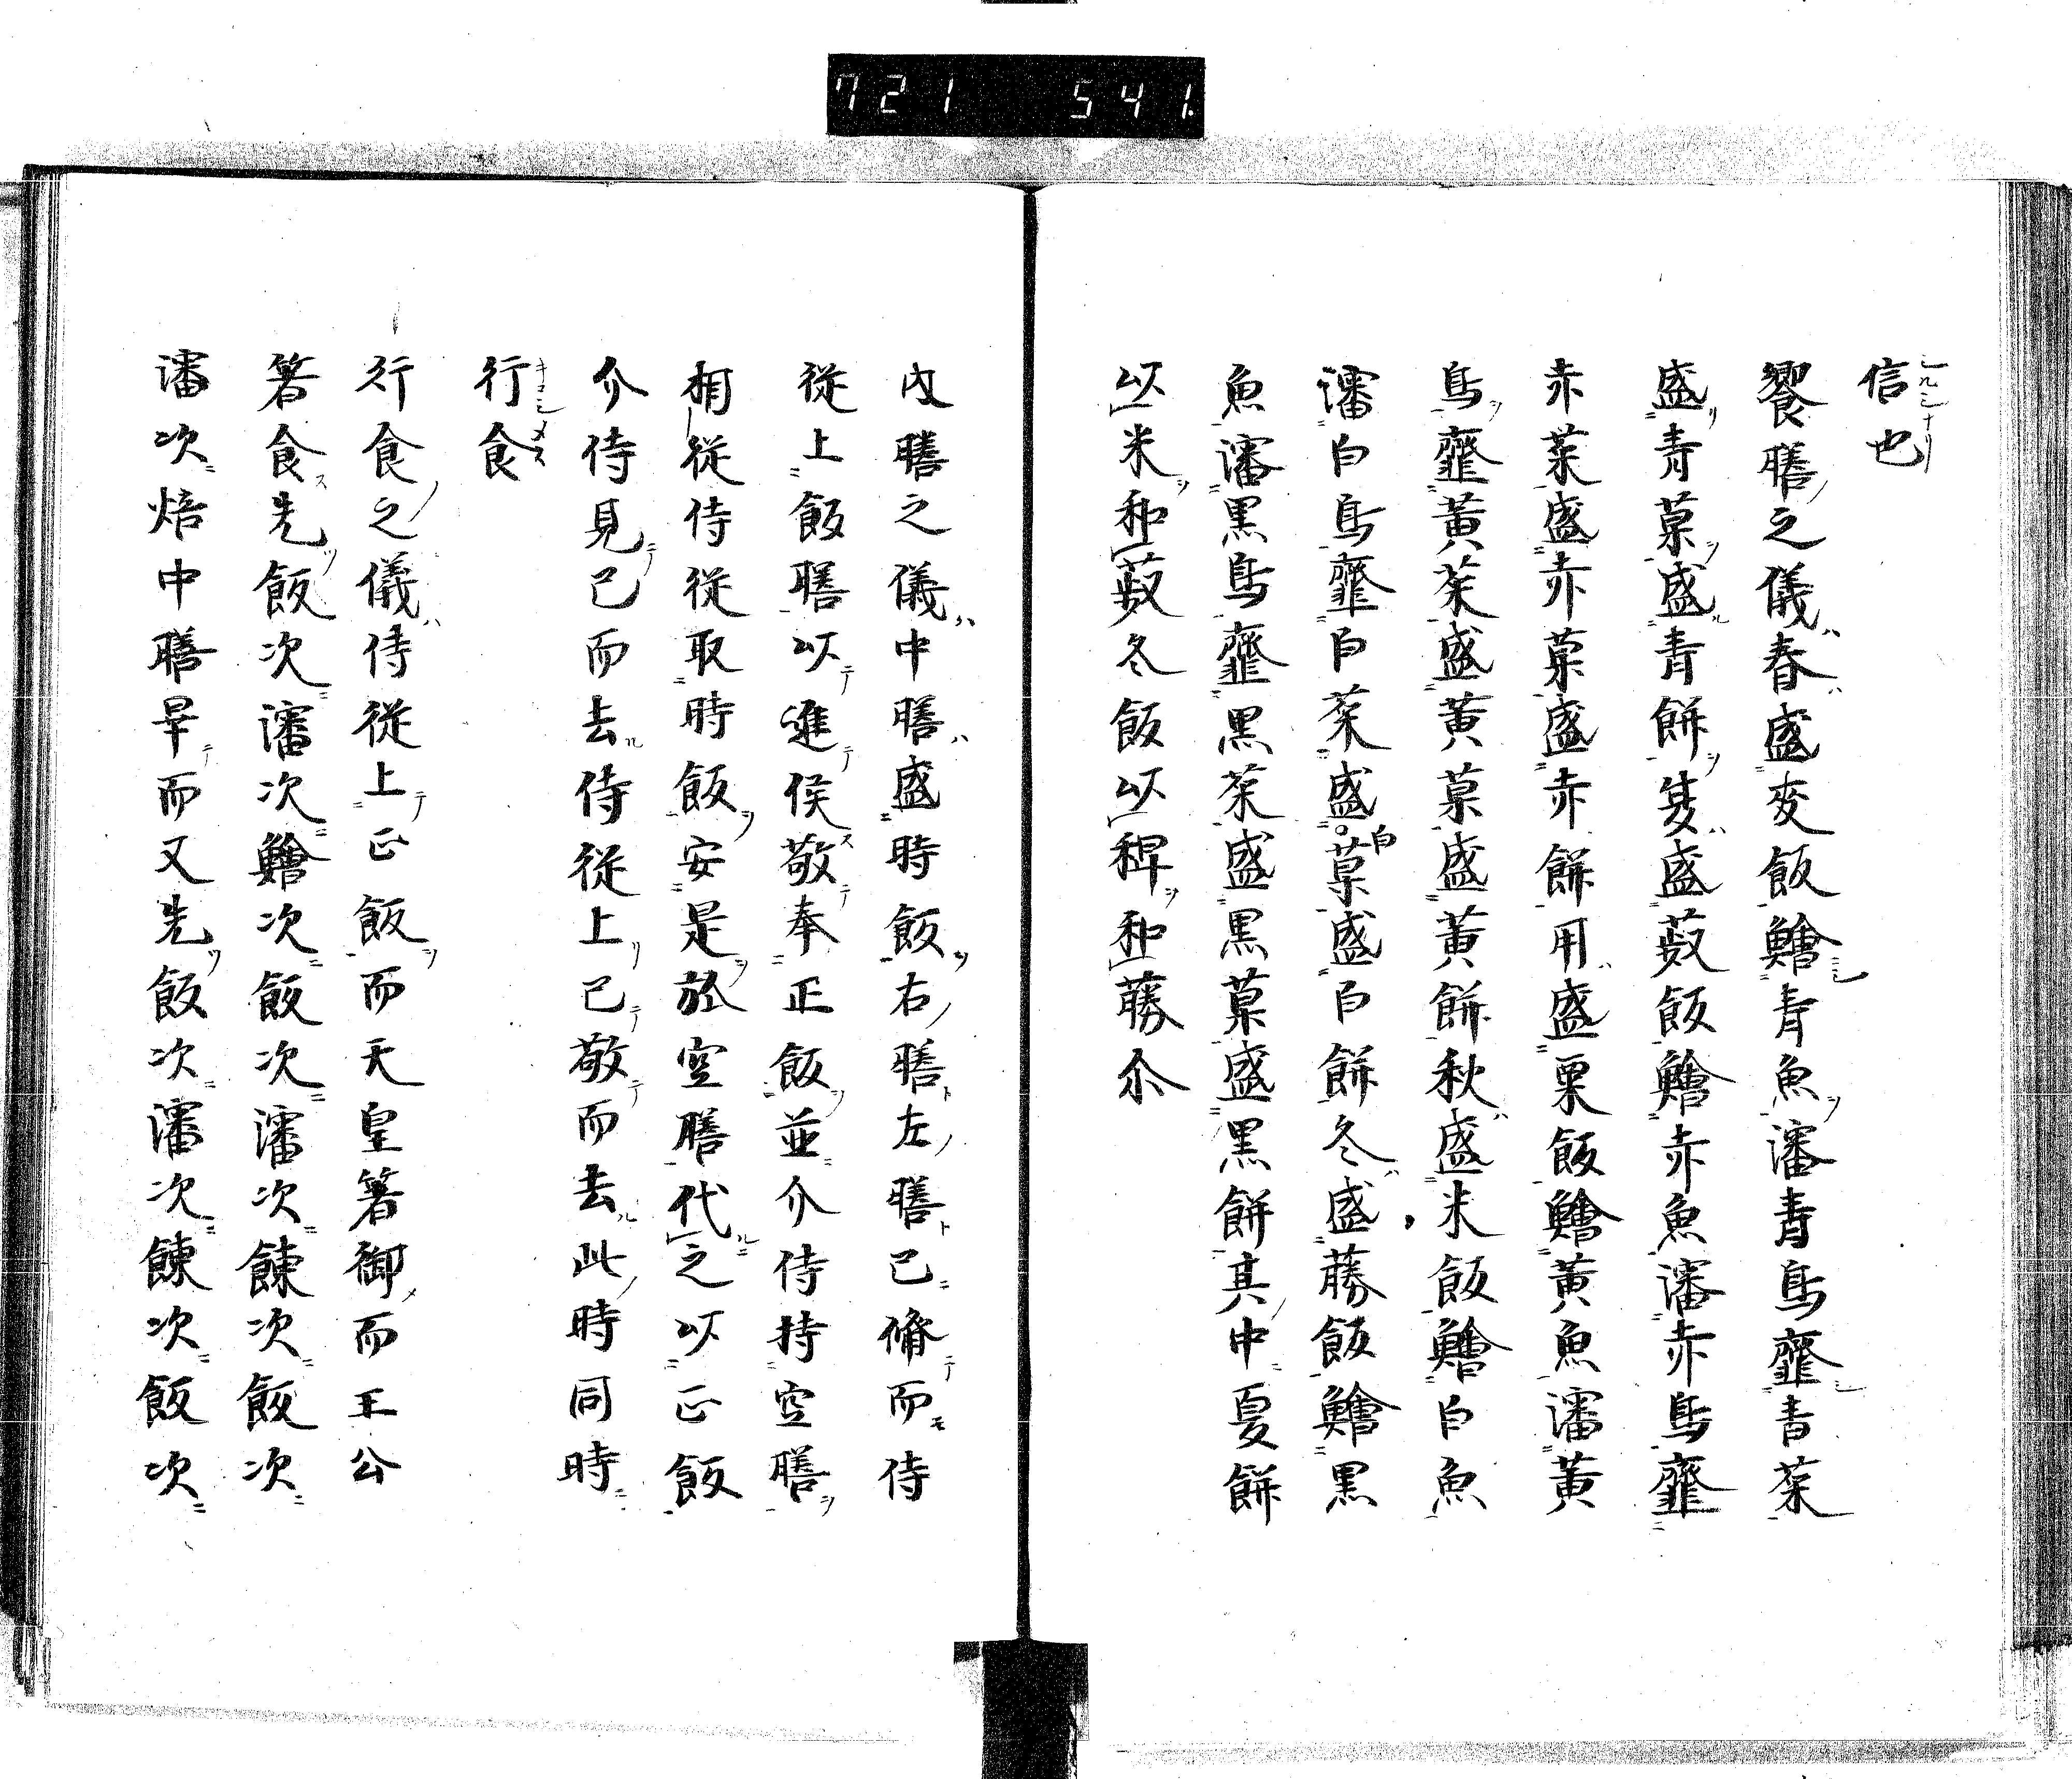 721 541.
信也
饗膳之儀春盛麥飯鱠青魚瀋青鳥虀青菜
盛青菓盛青餅夏盛菽飯鱠赤魚瀋赤鳥虀
赤菜盛赤菓盛赤餅用盛粟飯鱠黃魚瀋黃
鳥虀黃菜盛黃菓盛黃餅秋盛米飯鱠白魚
瀋白鳥虀白菜盛白菓盛白餅冬盛䕨飯鱠黒
魚瀋黒鳥虀黒菜盛黒菓盛黒餅其中夏餅
以米和菽冬飯以稗和䕨尒
內膳之儀中膳盛時飯右膳左膳已脩而侍
從上飯膳以進侯敬奉正飯並介侍持空膳
相從侍從取時飯安是於空膳代之以正飯
介侍見已而去侍從上已敬而去此時同時
行食
行食之儀侍從上正飯而天皇箸御而王公
箸食先飯次瀋次鱠次飯次瀋次餗次飯次
瀋次焙中膳畢而又先飯次瀋次餗次飯次